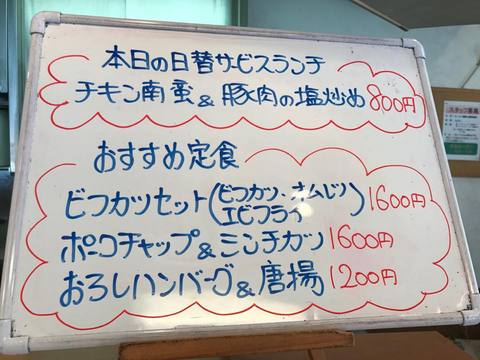 本日の日替サービスランチ
チキン南蛮&豚肉の塩炒め 800円
おすすめ定食
ビフカツセット(ビフカツ・オムレツ エビフライ) 1600円
ポークチャップ&ミンチカツ 1600円
おろしハンバーグ&唐揚 1200円
スタッフ募集